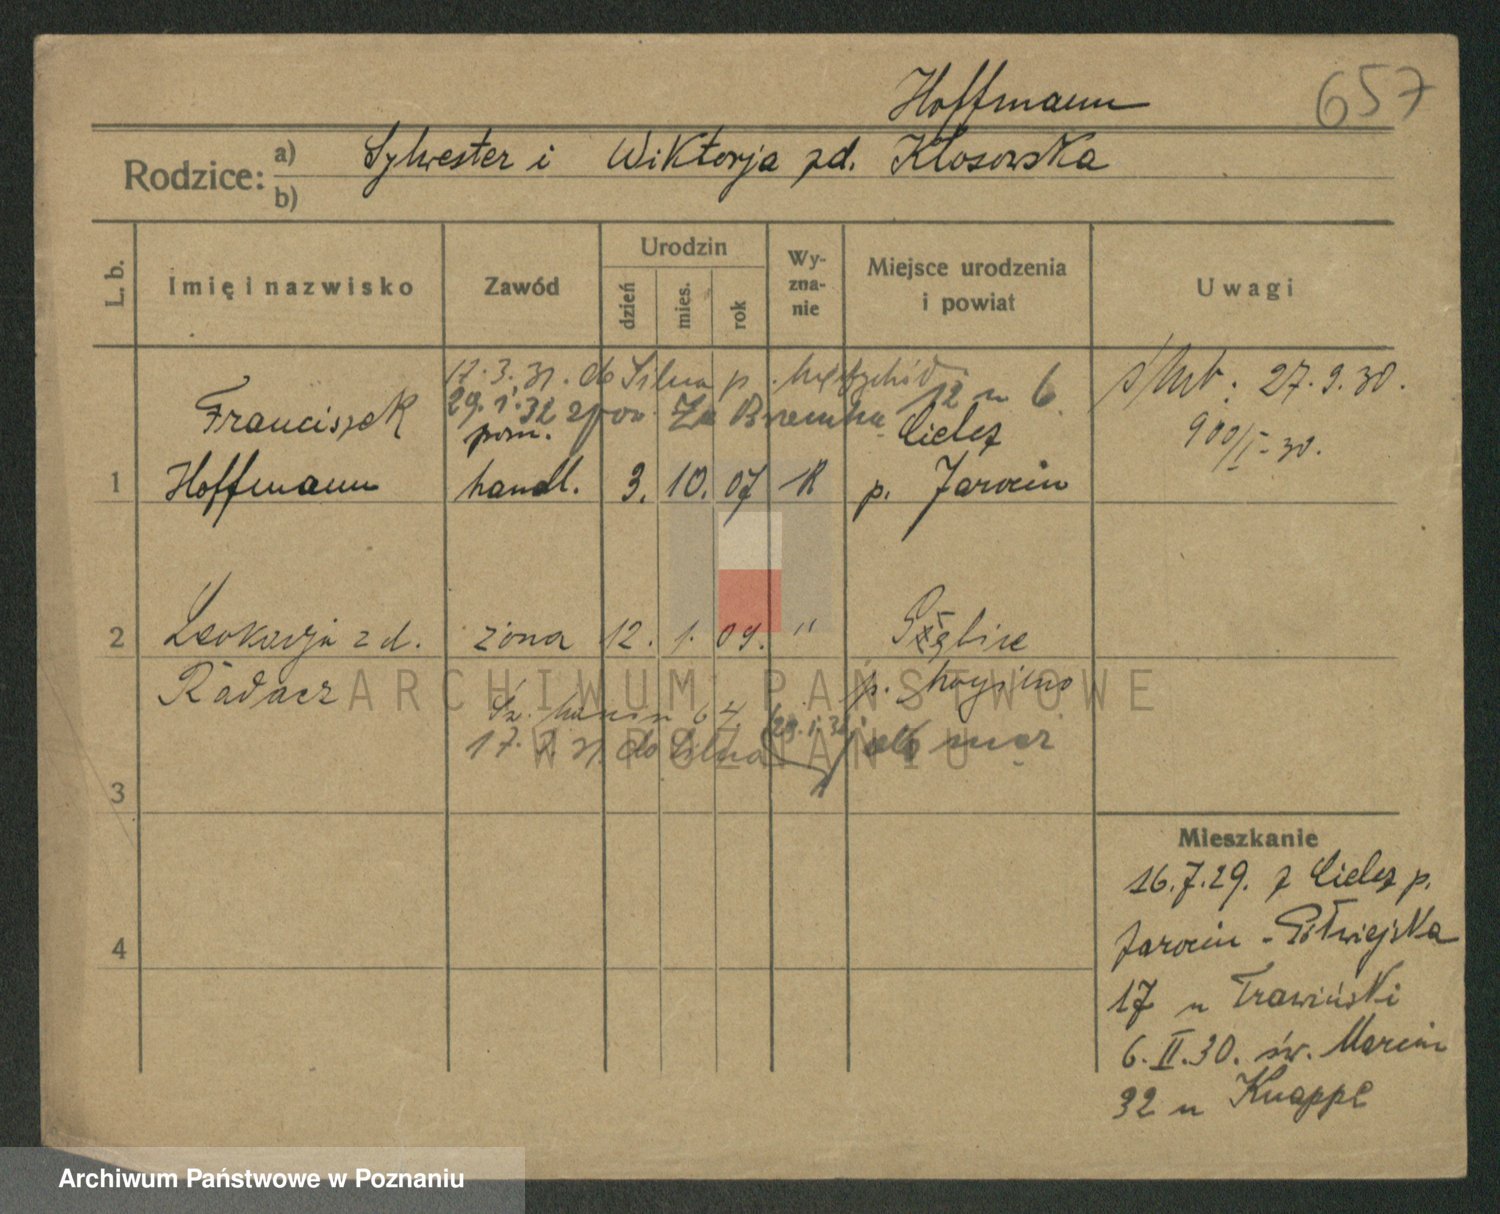 Hoffmann
657
Rodzice: a) Sylwester i Wiktorja zd. Kłosowska
b)
L. b.
Imię i nazwisko
Zawód
Urodzin
dzień
mies.
rok
Wy-
zna-
nie
Miejsce urodzenia
i powiat
Uwagi
17.3.31. do Silna p.
29.1.32 zpow. Za Bramką 12 u 6
ślub: 27.9.30.
Franciszek pom. Cielcz
900/I-30.
1 Hoffmann handl. 3. 10. 07 R p. Jarocin
2 Leokadja zd. żona 12. 1. 09. "
Radacz
Św. Marcin 64
17.3.31 do Silna 29.1.32 jak mąż
3
4
Mieszkanie
16.7.29. z Cielcz p.
Jarocin - Półwiejska
17 u Trawiński
6.II.30. św. Marcin
32 u Knappe
ARCHIWUM PAŃSTWOWE
W POZNANIU
Archiwum Państwowe w Poznaniu